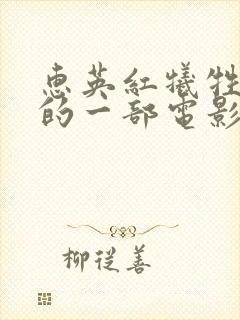 惠英紅犧牲
的一部電影
柳從善